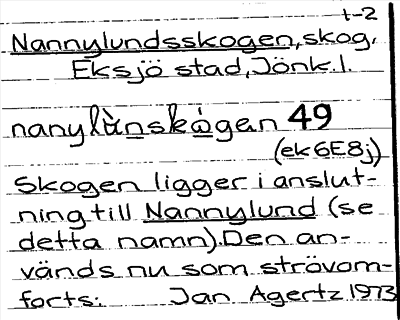 1-2
Nannylundsskogen, skog,
Eksjö stad, Jönk. l.
nanylùnskógen 49
(ek 6E8j)
Skogen ligger i anslut-
ning till Nannylund (se
detta namn). Den an-
vänds nu som strövom-
forts. Jan Agertz 1973